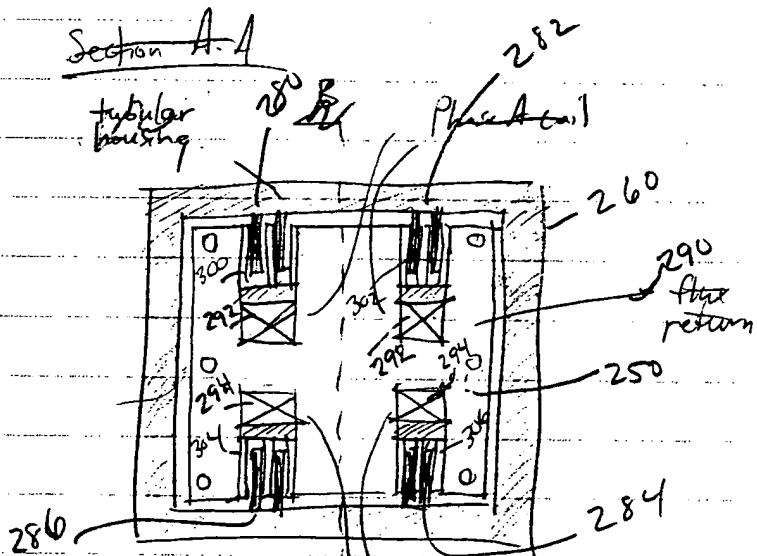 Section A-A
282
tubular
housing
280
Phase A coil
260
290
flux
return
300
302
292
292
294
294
250
304
306
286
284